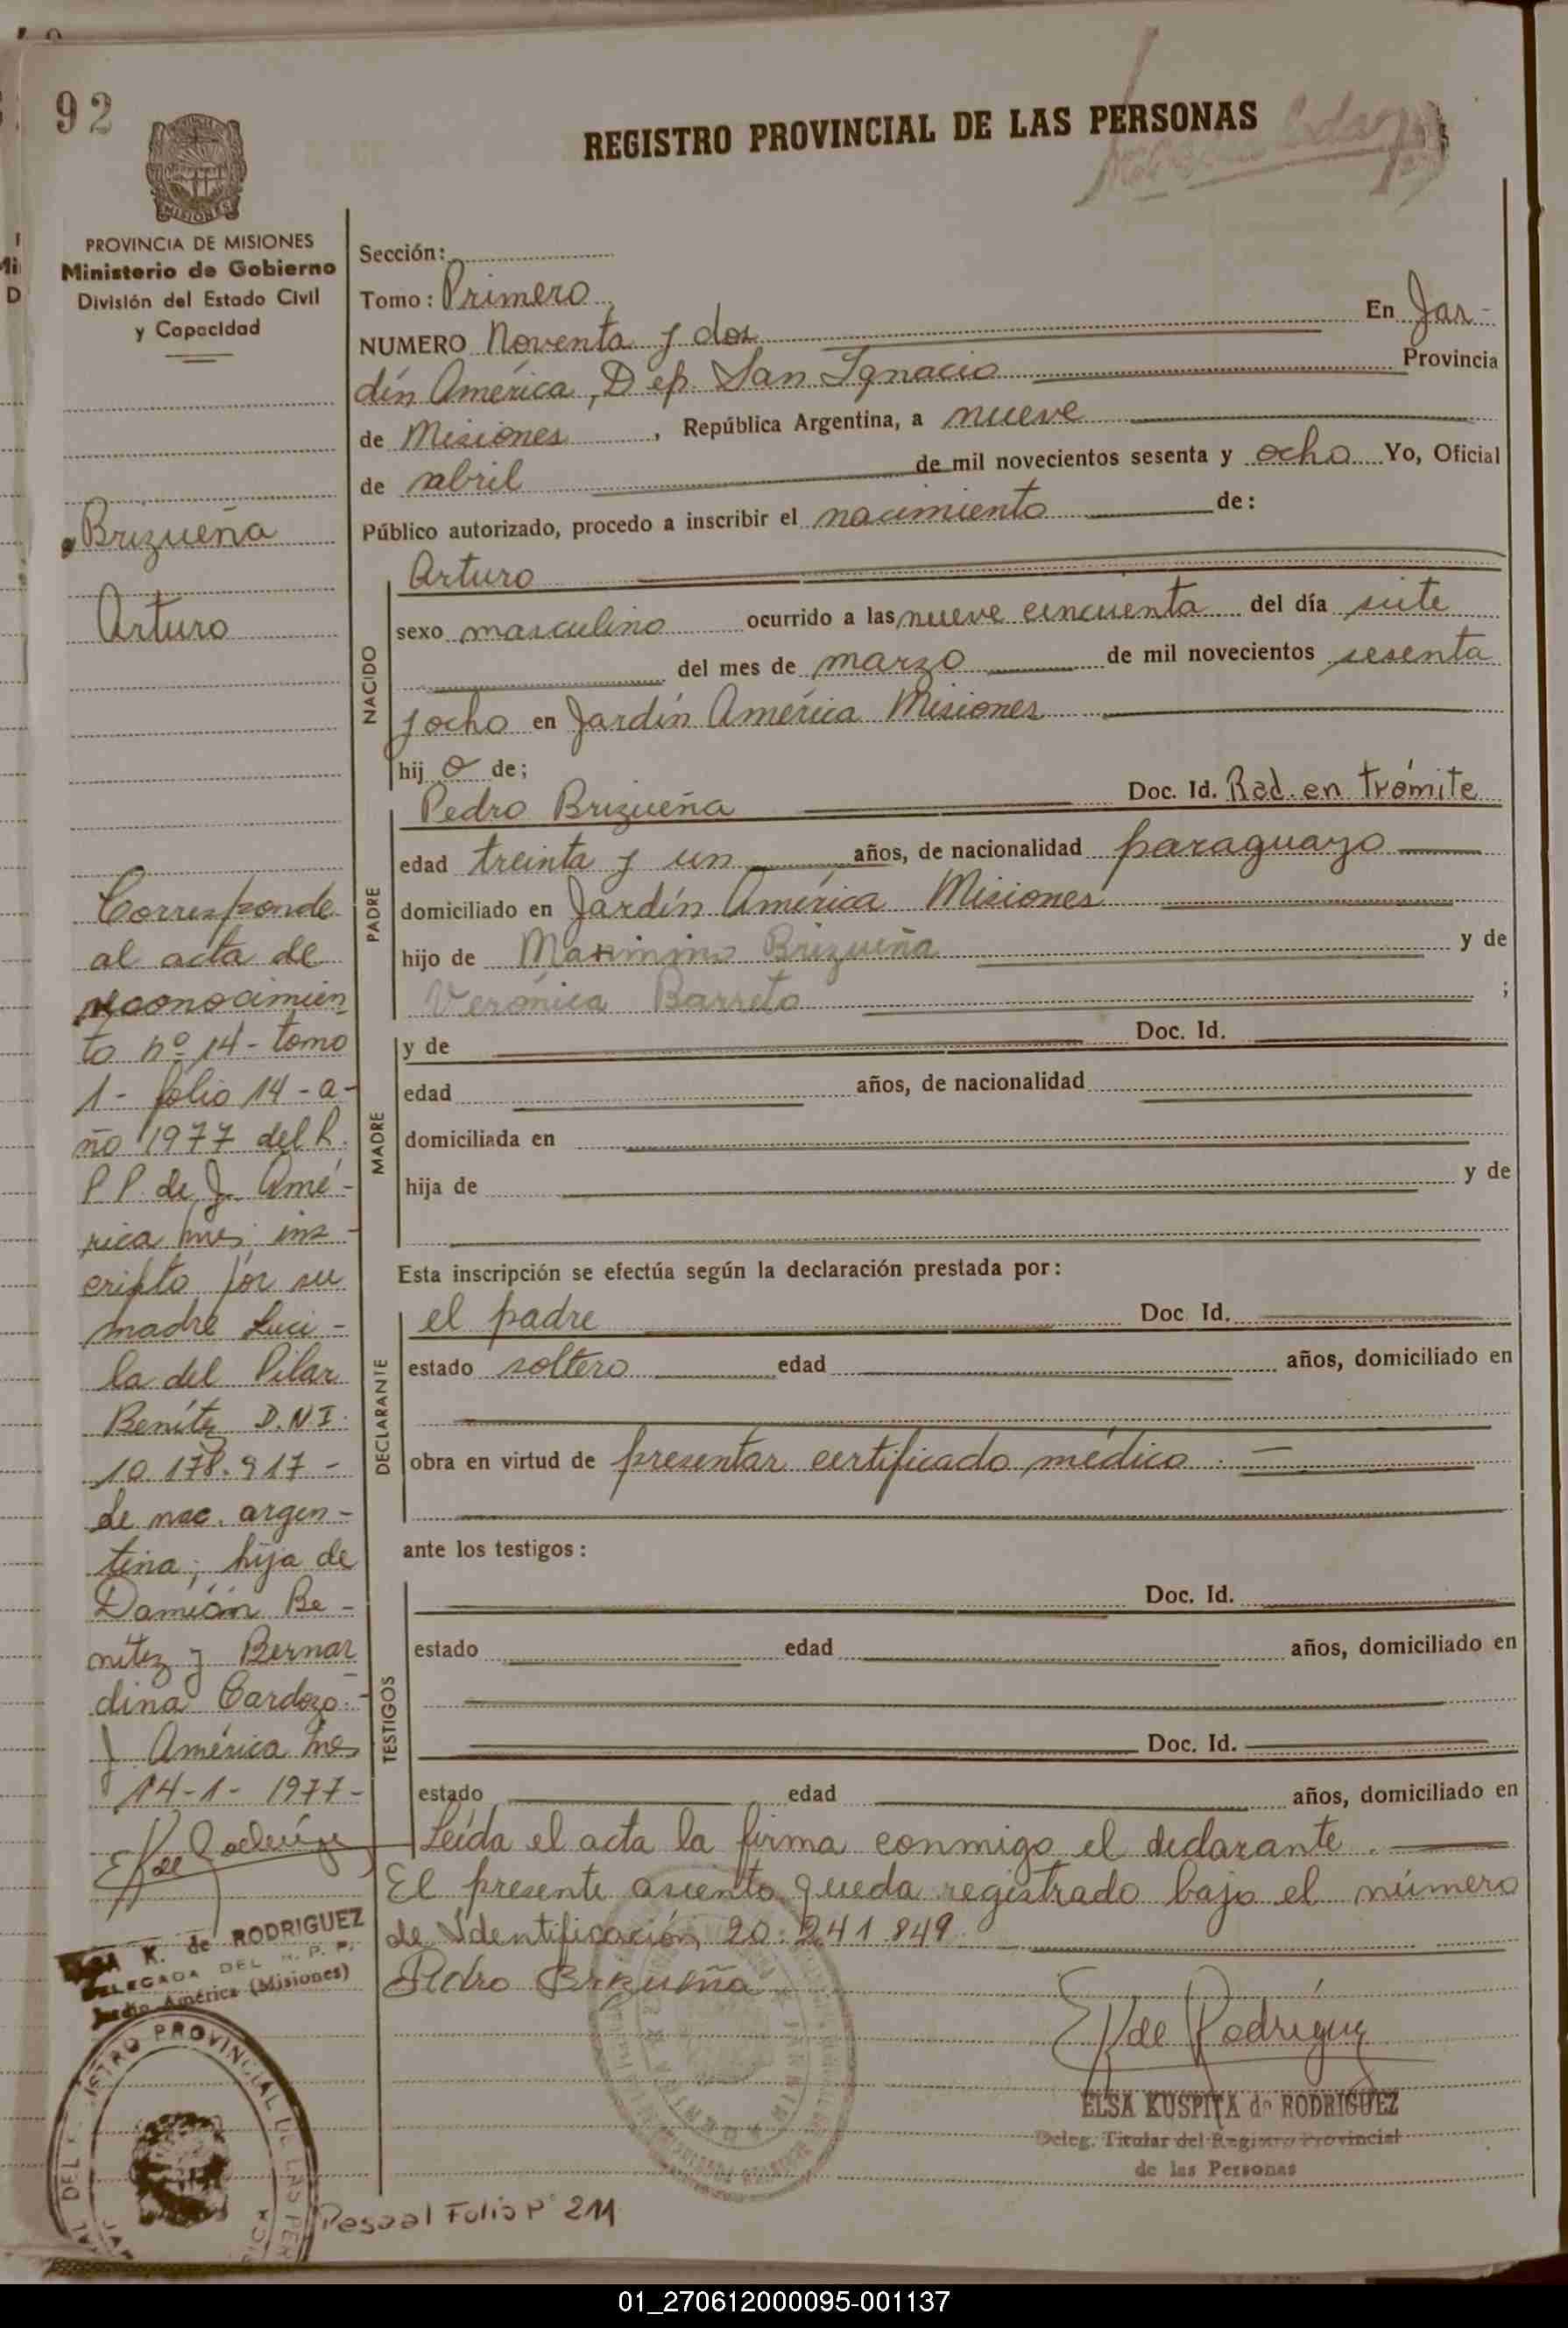 92
REGISTRO PROVINCIAL DE LAS PERSONAS
MISIONES
PROVINCIA DE MISIONES
Ministerio de Gobierno
División del Estado Civil
y Capacidad
Brizueña
Arturo
Corresponde
al acta de
reconocimien
to nº 14 - tomo
1 - folio 14 - a-
ño 1977 del R.
P P. de J. Amé-
rica Mnes; ins-
cripto por su
madre Luci-
la del Pilar
Benítez D.N.I.
10.178.917 -
de nac. argen-
tina; hija de
Damián Be-
nítez y Bernar
dina Cardozo.-
J. América Mnes
14-1-1977-
EK de Rodríguez
K. de RODRIGUEZ
DELEGADA DEL R. P. P.
Jardín América (Misiones)
Sección:
Tomo: Primero
NUMERO Noventa y dos En Jar-
dín América, Dep. San Ignacio Provincia
de Misiones, República Argentina, a nueve
de abril de mil novecientos sesenta y ocho Yo, Oficial
Público autorizado, procedo a inscribir el nacimiento de:
NACIDO
Arturo
sexo masculino ocurrido a las nueve cincuenta del día siete
del mes de marzo de mil novecientos sesenta
y ocho en Jardín América Misiones
hij o de;
PADRE
Pedro Brizueña Doc. Id. Rad. en trámite
edad treinta y un años, de nacionalidad paraguayo
domiciliado en Jardín América Misiones
hijo de Maximino Brizueña y de
Verónica Barreto ;
MADRE
y de Doc. Id.
edad años, de nacionalidad
domiciliada en
hija de y de
Esta inscripción se efectúa según la declaración prestada por:
DECLARANTE
el padre Doc. Id.
estado soltero edad años, domiciliado en
obra en virtud de presentar certificado médico.
ante los testigos:
TESTIGOS
Doc. Id.
estado edad años, domiciliado en
Doc. Id.
estado edad años, domiciliado en
Leída el acta la firma conmigo el declarante.
El presente asiento queda registrado bajo el número
de Identificación 20.241.849
Pedro Brizueña
EK de Rodríguez
ELSA KUSPITA de RODRIGUEZ
Deleg. Titular del Registro Provincial
de las Personas
Folio Nº 211
01_270612000095-001137